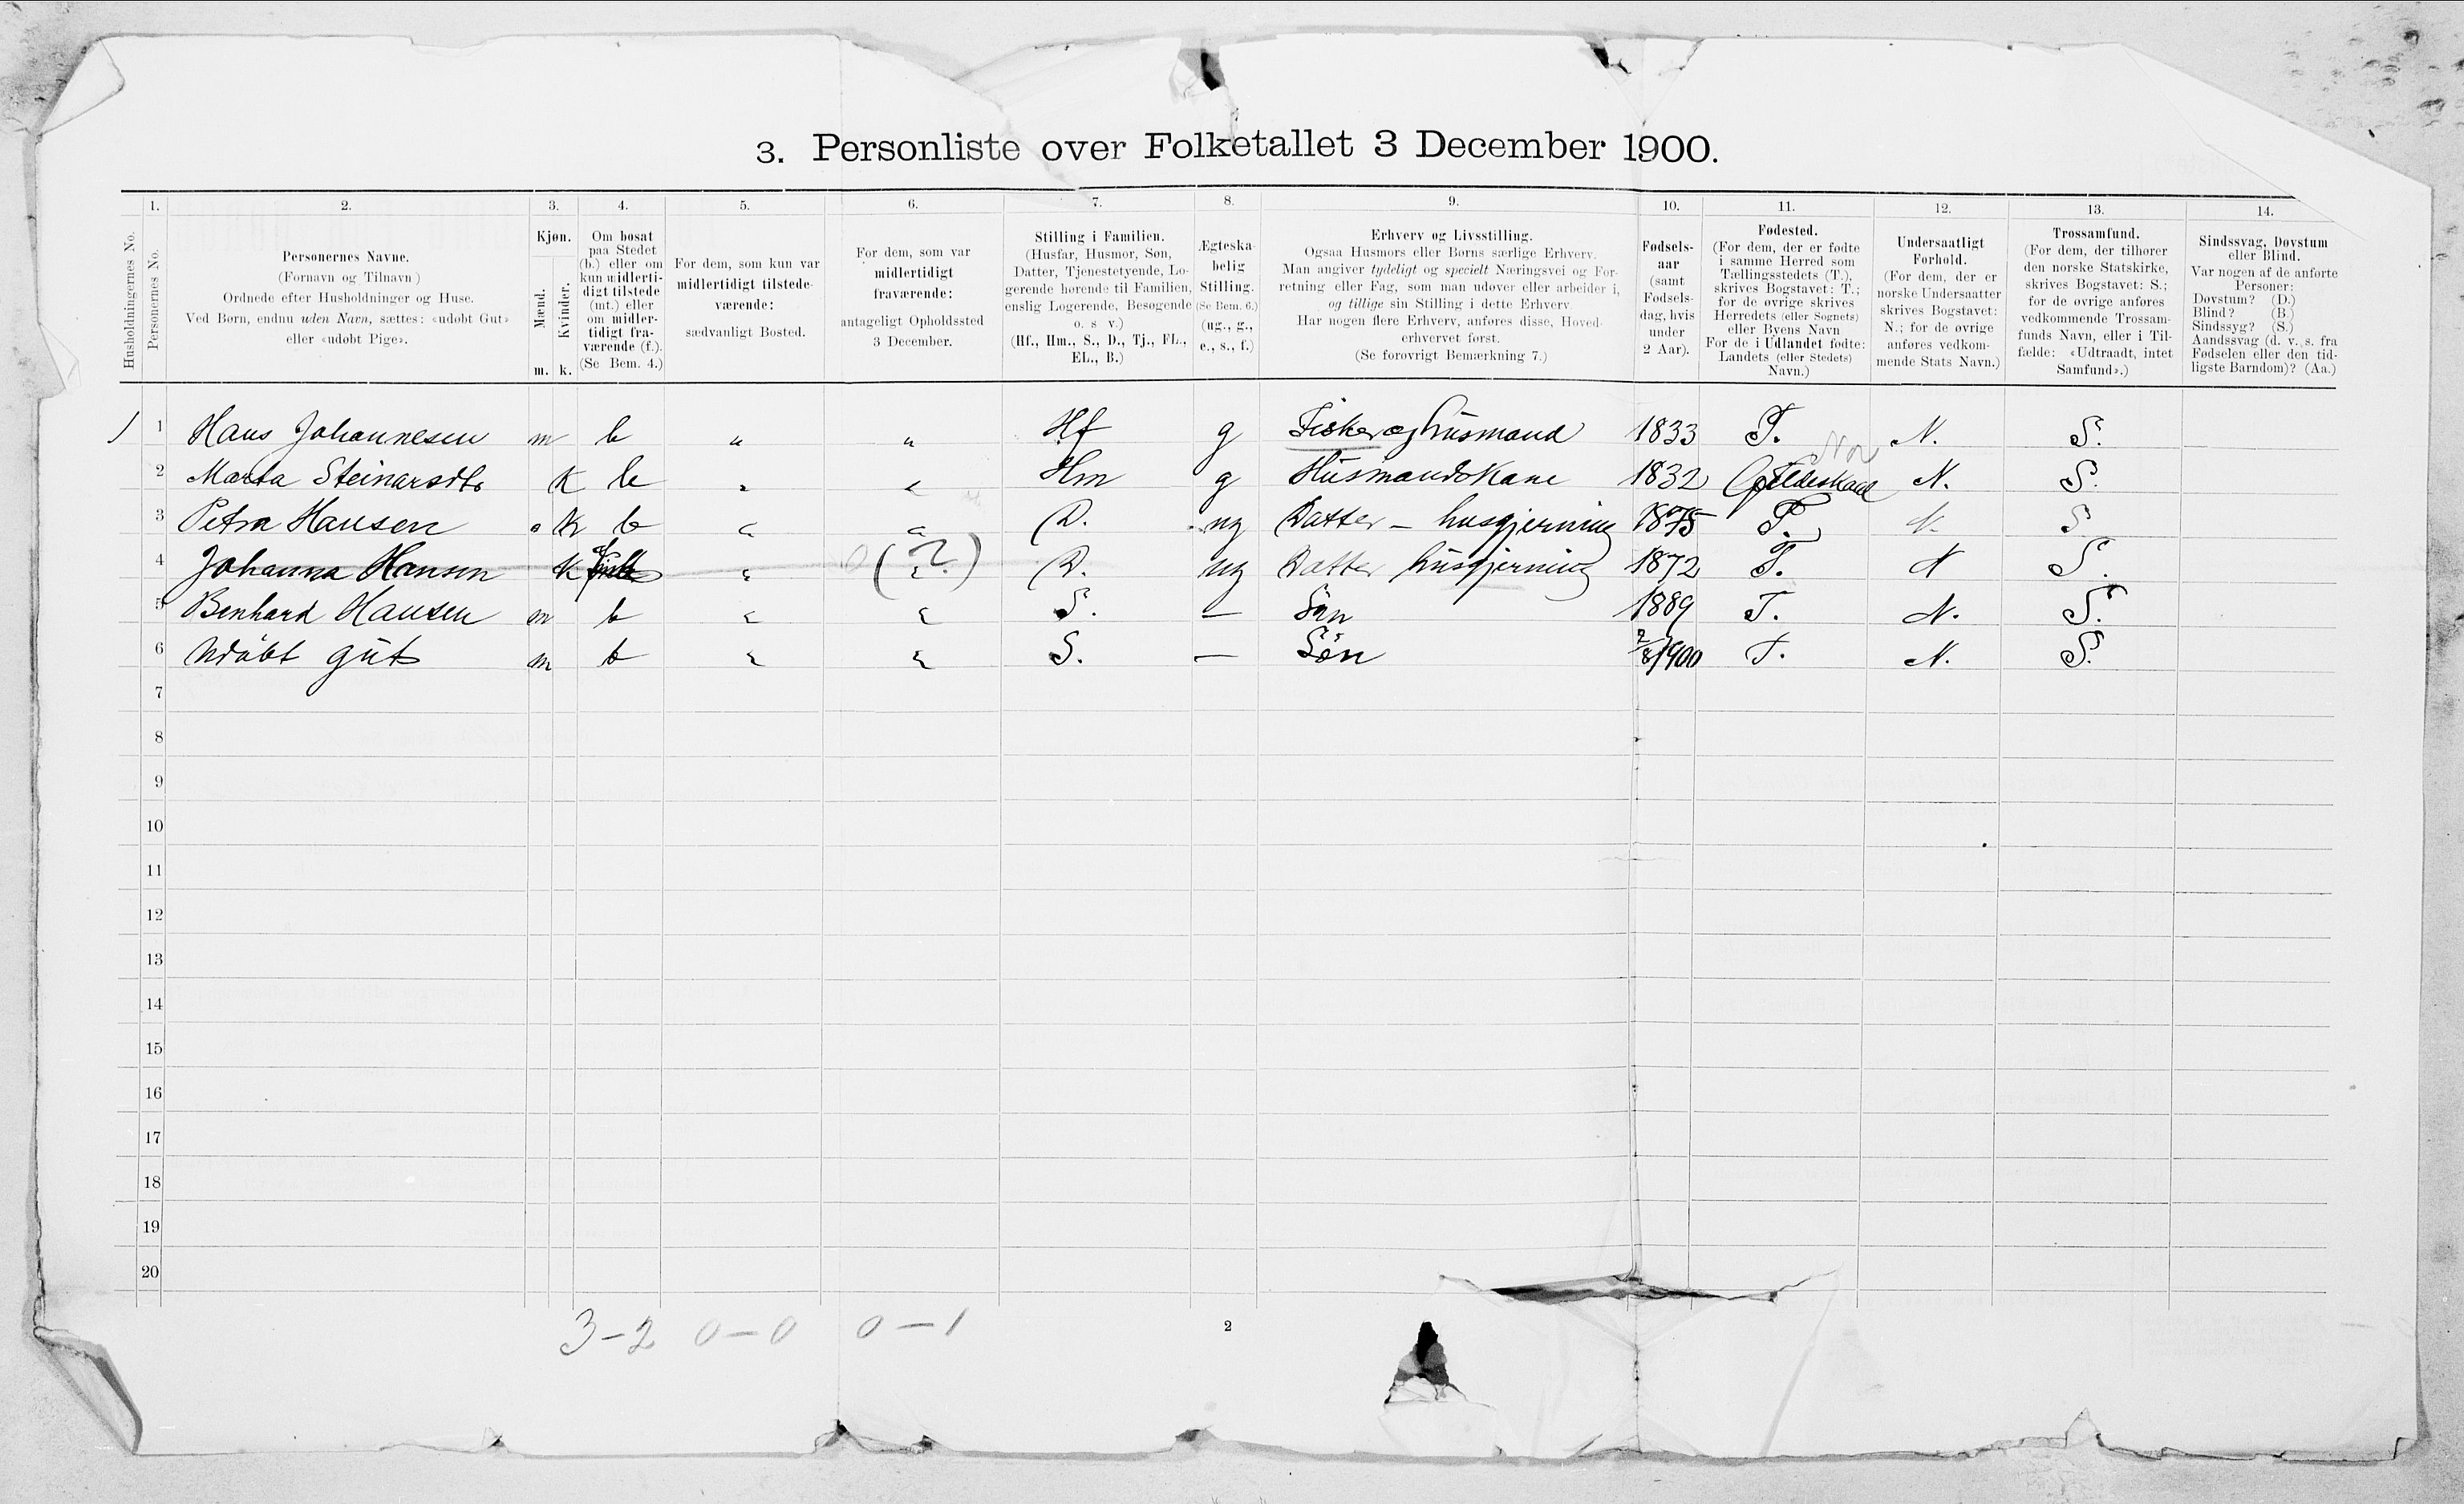 3. Personliste over Folketallet 3 December 1900.
1. 2. 3. 4. 5. 6. 7. 8. 9. 10. 11. 12. 13. 14.
Husholdningernes No.
Personernes No.
Personernes Navne.
(Fornavn og Tilnavn)
Ordnede efter Husholdninger og Huse.
Ved Børn, endnu uden Navn, sættes: «udøbt Gut»
eller «udøbt Pige».
Kjøn.
Mænd.
Kvinder.
m. k.
Om bosat
paa Stedet
(b.) eller om
kun midlerti-
digt tilstede
(mt.) eller
om midler-
tidigt fra-
værende (f.).
(Se Bem. 4.)
For dem, som kun var
midlertidigt tilstede-
værende:
sædvanligt Bosted.
For dem, som var
midlertidigt
fraværende:
antageligt Opholdssted
3 December.
Stilling i Familien.
(Husfar, Husmor, Søn,
Datter, Tjenestetyende, Lo-
gerende hørende til Familien,
enslig Logerende, Besøgende
o. s v.)
(Hf., Hm., S., D., Tj., FL.,
EL., B.)
Ægteska-
belig
Stilling.
(Se Bem. 6.)
(ug., g.,
e., s., f.)
Erhverv og Livsstilling.
Ogsaa Husmors eller Børns særlige Erhverv.
Man angiver tydeligt og specielt Næringsvei og For-
retning eller Fag, som man udøver eller arbeider i,
og tillige sin Stilling i dette Erhverv.
Har nogen flere Erhverv, anføres disse, Hoved-
erhvervet først.
(Se forøvrigt Bemærkning 7.)
Fødsels-
aar
(samt
Fødsels-
dag, hvis
under
2 Aar).
Fødested.
(For dem, der er fødte
i samme Herred som
Tællingsstedets (T.),
skrives Bogstavet: T.;
for de øvrige skrives
Herredets (eller Sognets)
eller Byens Navn
For de i Udlandet fødte:
Landets (eller Stedets)
Navn.)
Undersaatligt
Forhold.
(For dem, der er
norske Undersaatter
skrives Bogstavet:
N.; for de øvrige
anføres vedkom-
mende Stats Navn.)
Trossamfund.
(For dem, der tilhører
den norske Statskirke,
skrives Bogstavet: S.;
for de øvrige anføres
vedkommende Trossam-
funds Navn, eller i Til-
fælde: «Udtraadt, intet
Samfund».)
Sindssvag, Døvstum
eller Blind.
Var nogen af de anførte
Personer:
Døvstum? (D.)
Blind? (B.)
Sindssyg? (S.)
Aandssvag (d. v. s. fra
Fødselen eller den tid-
ligste Barndom)? (Aa.)
1 1 Hans Johannesen m b " " Hf g Fisker og husmand 1833 T. N. S.
2 Marta Steinarsdt. K b " " Hm g Husmandskane 1832 Gildeskaal N. S.
3 Petra Hansen K b " " D. ug Datter - husgjerning 1875 T. N. S
4 Johanna Hansen K f " (?) D. ug Datter husgjerning 1872 T. N S.
5 Benhard Hansen m b " " S. — Søn 1889 T. N. S.
6 Udøbt gut m b " " S. — Søn 2/8 1900 T. N. S.
7
8
9
10
11
12
13
14
15
16
17
18
19
20
3-2 0-0 0-1
2